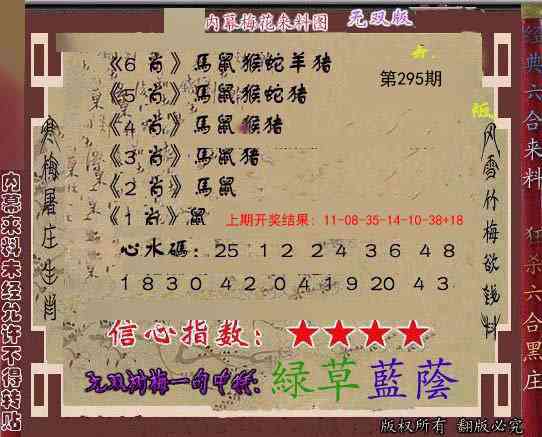 内幕梅花来料图 无双版
《6 肖》馬鼠猴蛇羊猪
第295期
《5 肖》馬鼠猴蛇猪
《4 肖》馬鼠猴猪
《3 肖》馬鼠猪
《2 肖》馬鼠
《1 肖》鼠
上期开奖结果：11-08-35-14-10-38+18
心水碼：25 12 24 36 48
18 30 42 04 19 20 43
信心指数：★★★★
绿草藍蔭
版权所有 翻版必究
寒梅屠庄生肖
风雪竹梅欲钱料
内幕来料未经允许不得转贴
经典六合来料 狂杀六合黑庄